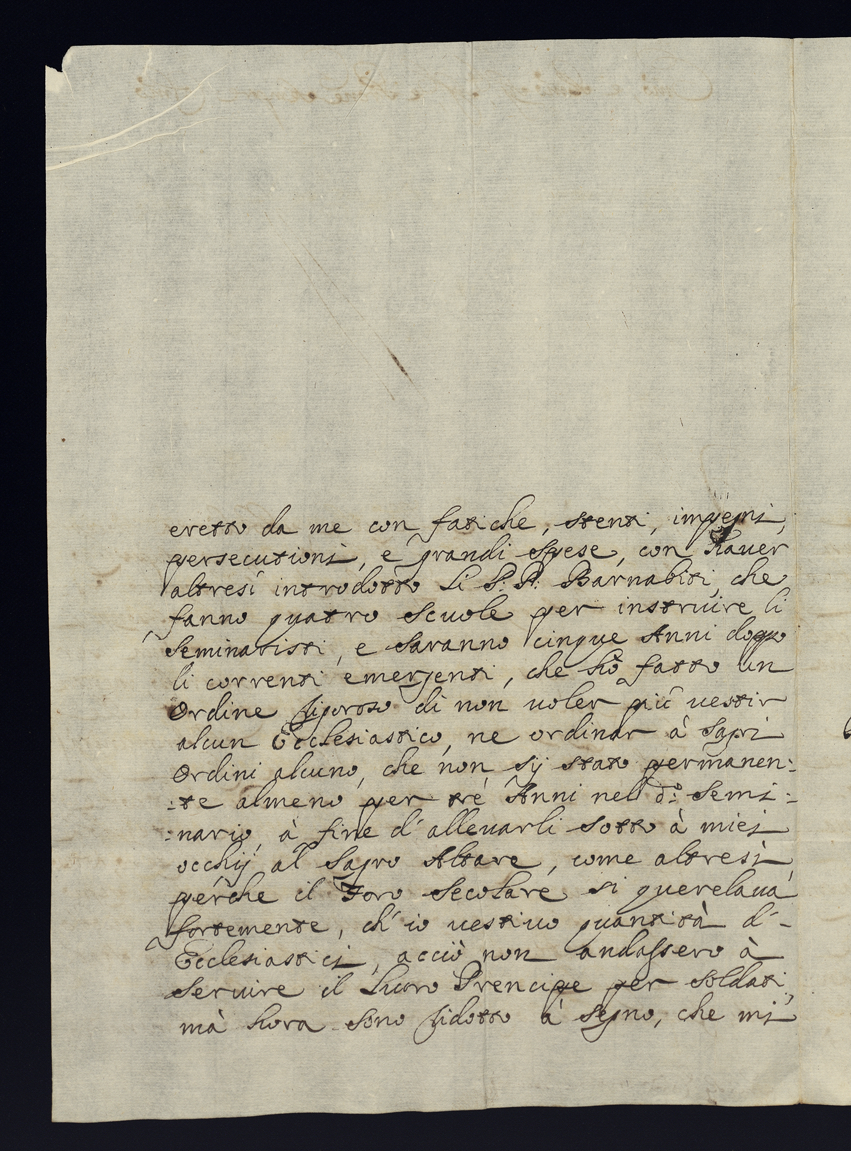 eretto da me con fatiche, stenti, impegni,
persecutioni, e grandi spese, con haver
altresi introdotto li P.P. Barnabiti, che
fanno quatro scuole per instruire li
seminaristi, e saranno cinque Anni doppo
li correnti emergenti, che hò fatto un
ordine rigoroso di non voler più vestir
alcun Ecclesiastico, ne ordinar à sagri
ordini alcuno, che non sij stato permanen:
:te almeno per tré Anni nel do: semi:
:nario, à fine d'allevarli sotto à miei
occhij al sagro Altare, come altresì
perche il Foro secolare si querelava
fortemente, ch'io vestivo quantità d'-
Ecclesiastici, acciò non andassero à
servire il luoro Prencipe per soldati,
mà hora sono ridotto à segno, che mi